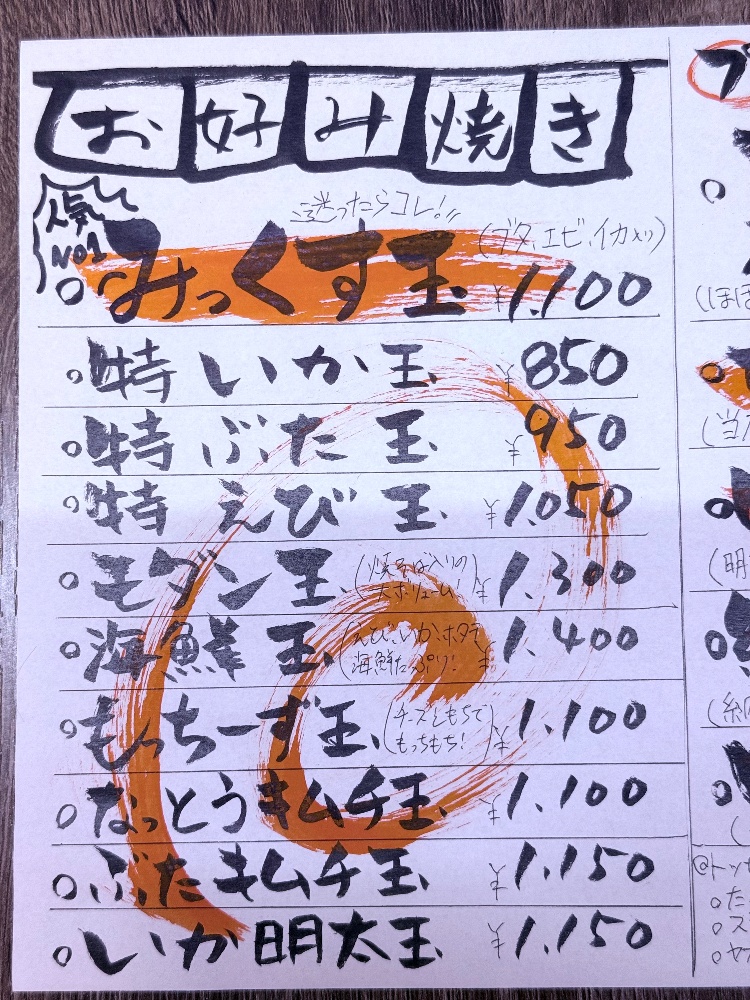 お好み焼き
人気
NO1
迷ったらコレ!!
(ブタ、エビ、イカ入り)
○みっくす玉 ¥1,100
○特 いか玉 ¥850
○特 ぶた玉 ¥950
○特 えび玉 ¥1,050
○モダン玉 (焼そば入りの
大ボリューム!) ¥1,300
○海鮮玉 (えび、いか、ホタテ
海鮮たっぷり!) ¥1,400
○もっちーず玉 (チーズともちで
もっちもち!) ¥1,100
○なっとうキムチ玉 ¥1,100
○ぶたキムチ玉 ¥1,150
○いか明太玉 ¥1,150
ブ
(ほぼ
(当
(明
@トッ
○た
○ス
○ヤ